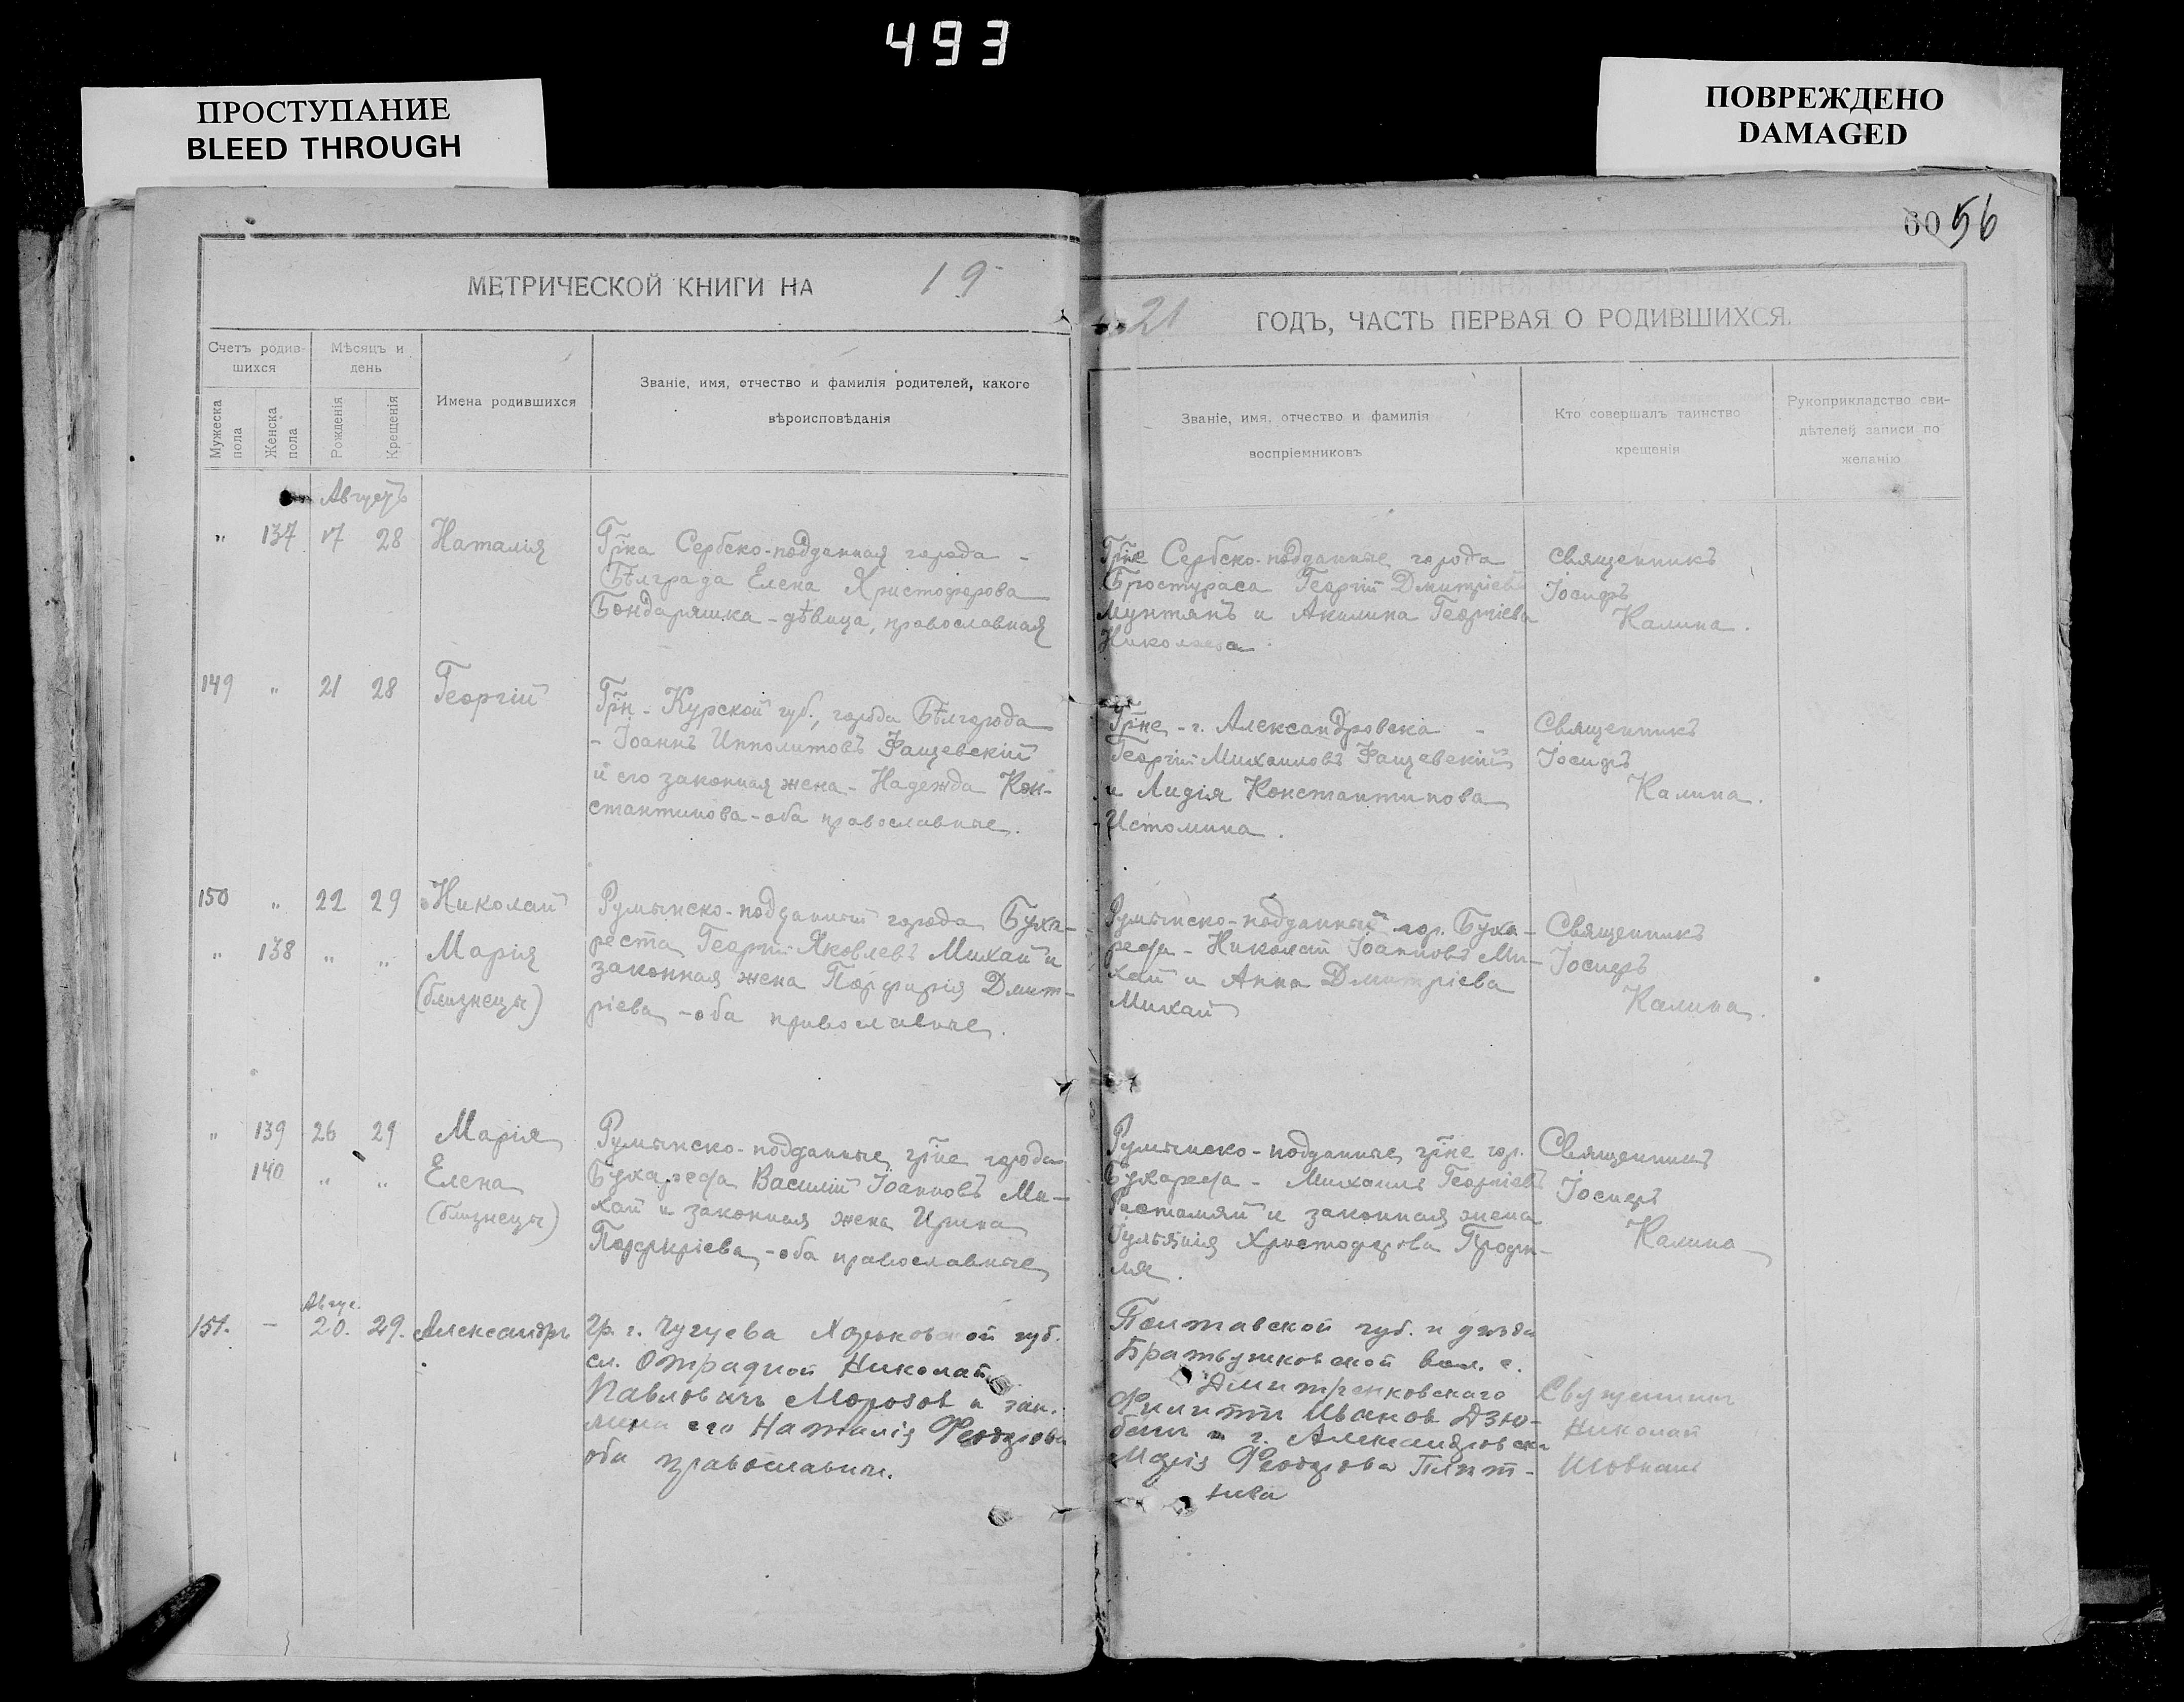 493
ПРОСТУПАНИЕ
BLEED THROUGH
ПОВРЕЖДЕНО
DAMAGED
60 56
МЕТРИЧЕСКОЙ КНИГИ НА 19
21 ГОДЪ, ЧАСТЬ ПЕРВАЯ О РОДИВШИХСЯ.
Счетъ родив-
шихся
Мѣсяцъ и
день
Мужеска
пола
Женска
пола
Рожденія
Крещенія
Имена родившихся
Званіе, имя, отчество и фамилія родителей, какого
вѣроисповѣданія
Званіе, имя, отчество и фамилія
воспріемниковъ
Кто совершалъ таинство
крещенія
Рукоприкладство сви-
дѣтелей записи по
желанію
Августъ
" 137 17 28 Наталія
Гр̃ка Сербско-подданная города -
Бѣлграда Елена Христофорова
Бондаряшка - дѣвица, православная
Гр̃не Сербско-подданные города
Георгій Дмитріевъ
Мунтянъ и Акилина Георгіева
Николаева
Священникъ
Іосифъ
Калина.
149 " 21 28 Георгій
Гр̃н - Курской губ., города Бѣлгорода
- Іоаннъ Ипполитовъ Фащевскій
и его законная жена - Надежда Кон-
стантинова - оба православные.
Гр̃не - г. Александровска -
Георгій Михаиловъ Фащевскій
и Лидія Константинова
Истомина.
Священникъ
Іосифъ
Калина.
150 " 22 29 Николай
" 138 " " Марія
(близнецы)
Румынско-подданный города Буха-
реста Георгій Яковлевъ Михай и
законная жена Порфирія Дмит-
ріева - оба православные.
Румынско-подданный гор. Буха-
реста - Николай Іоанновъ Ми-
хай и Анна Дмитріева
Михай
Священникъ
Іосифъ
Калина.
" 139 26 29 Марія
140 " " Елена
(близнецы)
Румынско-подданные гр̃не города
Бухареста Василій Іоанновъ Ми-
хай и законная жена Ирина
Порфиріева - оба православные
Румынско-подданные гр̃не гор.
Бухареста - Михаилъ Георгіевъ
и законная жена
Христофорова
Священникъ
Іосифъ
Калина
Авгус.
151. - 20. 29. Александръ
Гр. г. Чугуева Харьковской губ.
сл. Отрадной Николай
Павловичъ Морозов и зак.
жена его Наталія Феодорова
оба православные.
Полтавской губ. и уезда
Братешковской вол. с.
Дмитренковскаго
Филиппъ Иванов Дзю-
бань и г. Александровска
Марія Феодорова Плит-
нева
Священникъ
Николай